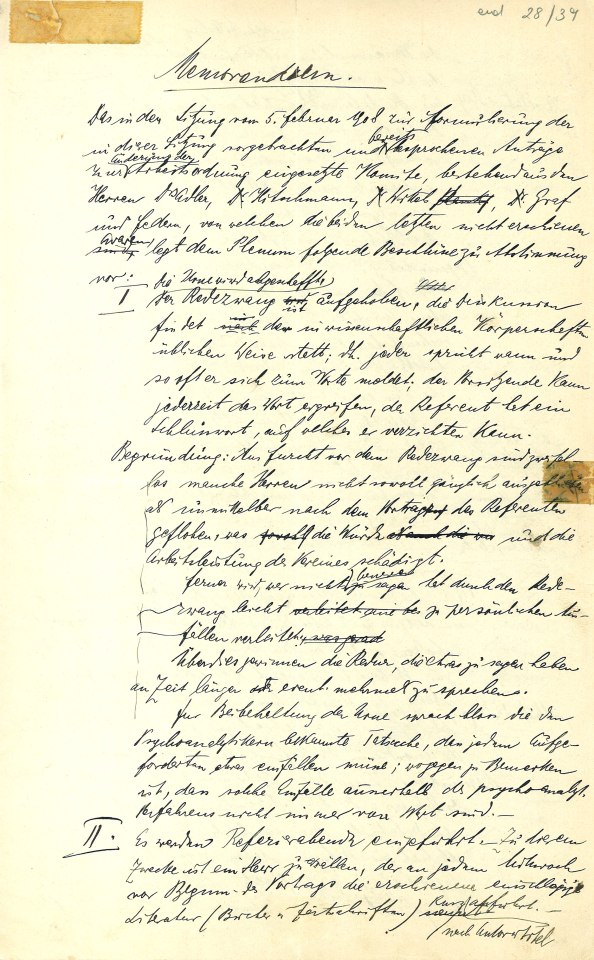 end 28/39
Memorandum.
Das in der Sitzung vom 5. Februar 1908 zur Formulierung der
in dieser Sitzung vorgebrachten und bereits besprochenen Anträge
zur Änderung der Arbeitsordnung eingesetzte Komite, bestehend aus den
Herren Dr Adler, Dr Hitschmann, Dr Wittels, Dr. Graf
und Federn, von welchen die beiden letzten nicht erschienen
waren, legt dem Plenum folgende Beschlüsse zu Abstimmung
vor:
Die Urne wird abgeschafft,
I Der Redezwang ist aufgehoben, die Diskussion
findet in der in wissenschaftlichen Körperschaften
üblichen Weise statt; dh. jeder spricht wann und
so oft er sich zum Worte meldet; der Vorsitzende kann
jederzeit das Wort ergreifen, der Referent hat ein
Schlusswort, auf welches er verzichten kann.
Begründung: Aus Furcht vor dem Redezwang sind zweifel
los manche Herren nicht sowohl gänzlich ausgeblieben
als unmittelbar nach dem Vortrag des Referenten
geflohen, was die Würde und die
Arbeitsleistung des Vereines schädigt.
Ferner wird, wer nichts zu sagen hat durch den Rede-
zwang leicht zu persönlichen Aus-
fällen verleitet
Überdies gewinnen die Redner, die etwas zu sagen haben
an Zeit länger oder event. mehrmals zu sprechen.
Für Beibehaltung der Urne sprach bloss die den
Psychoanalytikern bekannte Tatsache, dass jedem Aufge-
forderten etwas einfallen müsse; wogegen zu bemerken
ist, dass solche Einfälle ausserhalb des psychoanalyt.
Verfahrens nicht immer von Wert sind. —
II. Es werden Referierabende eingeführt. — Zu diesem
Zwecke ist ein Herr zu wählen, der an jedem Mittwoch
vor Beginn des Vortrags die erschienene einschlägige
Literatur (Bücher u Zeitschriften) kurz anführt. —
nach Autor u Titel